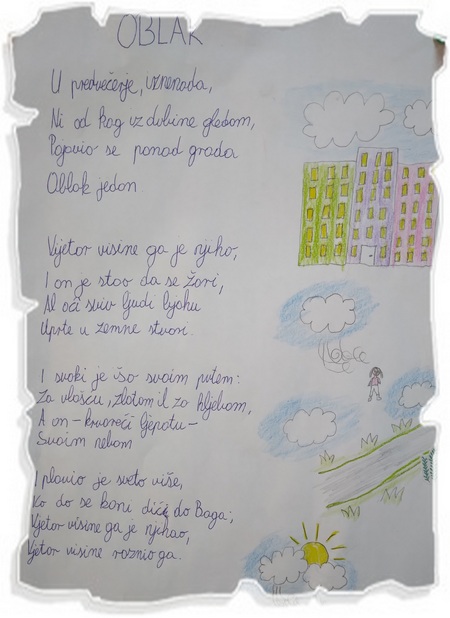 OBLAK
U predvečerje, iznenada,
Ni od kog iz dubine gledom,
Pojavio se ponad grada
Oblak jedan.
Vijetor visine ga je njiho,
I on je stao da se žari,
Al oči sviv ljudi byahu
Uprte u zemne stvari.
I svaki je išo svoim putem:
Za vlašću, zlatom il za hljebom,
A on - krvareći ljepotu -
Svoim nebom
I plovio je sveto više,
Ko do se kani dići do Boga;
Vjetar visine ga je njihao,
Vjetar visine raznio ga.